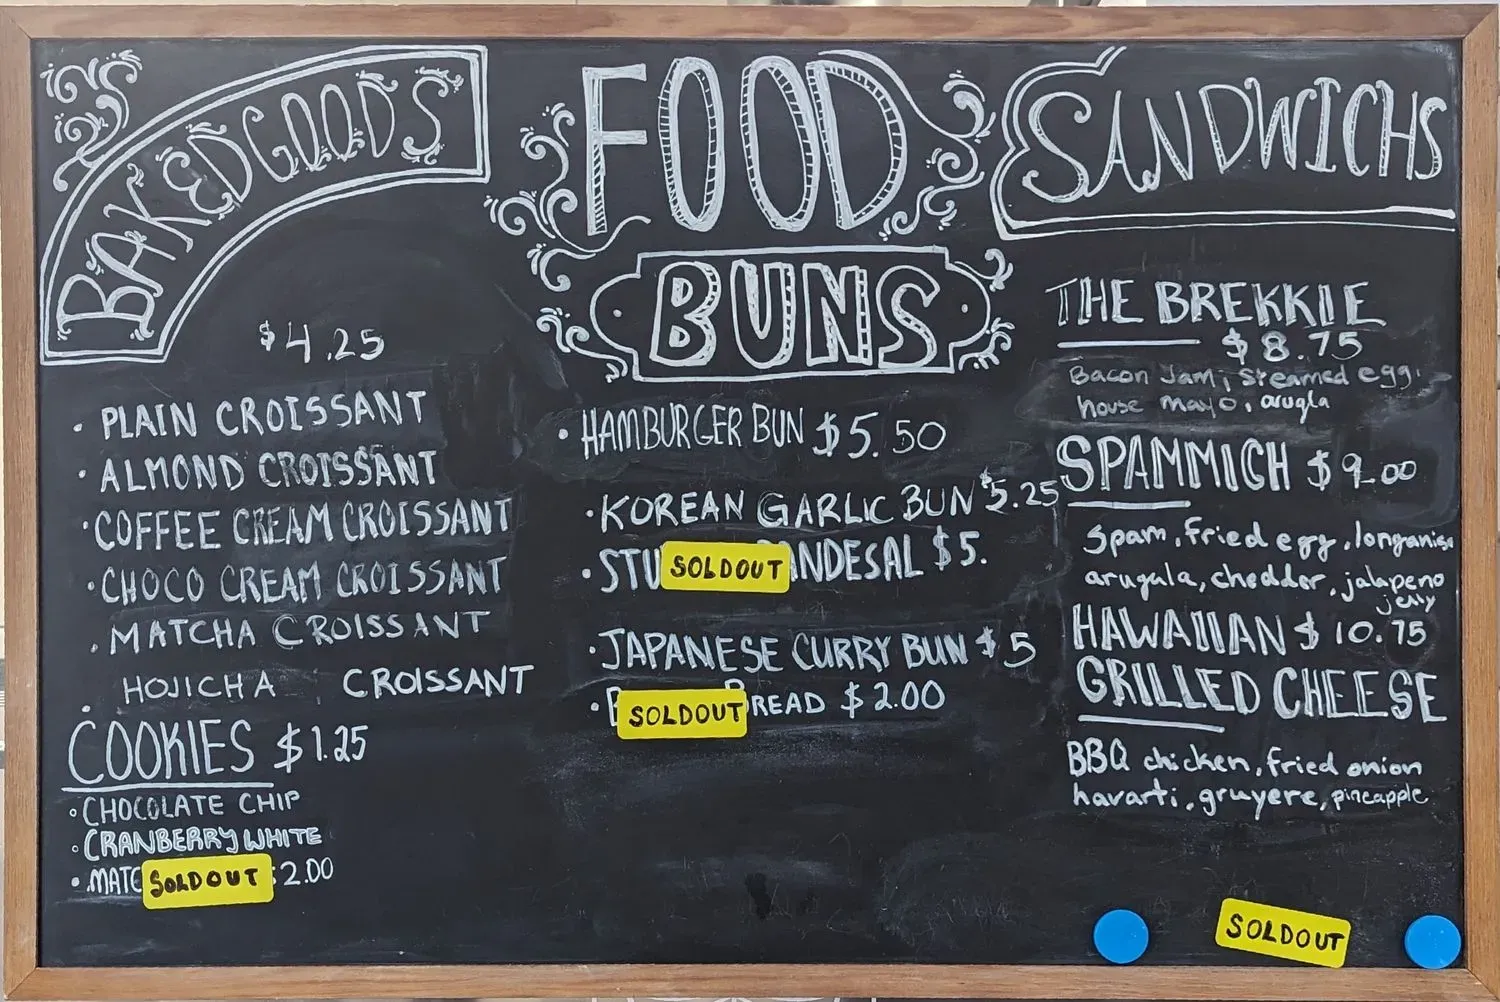 BAKED GOODS
$4.25
· PLAIN CROISSANT
· ALMOND CROISSANT
· COFFEE CREAM CROISSANT
· CHOCO CREAM CROISSANT
· MATCHA CROISSANT
· HOJICHA CROISSANT
COOKIES $1.25
· CHOCOLATE CHIP
· CRANBERRY WHITE
· MATC SOLDOUT $2.00
FOOD
BUNS
· HAMBURGER BUN $5.50
· KOREAN GARLIC BUN $5.25
· STU SOLDOUT ANDESAL $5.
· JAPANESE CURRY BUN $5
· SOLDOUT BREAD $2.00
SANDWICHS
THE BREKKIE
$8.75
Bacon Jam, Steamed egg,
house mayo, arugla
SPAMMICH $9.00
Spam, fried egg, longanisa
arugula, chedder, jalapeno
jelly
HAWAIIAN $10.75
GRILLED CHEESE
BBQ chicken, fried onion
havarti, gruyere, pineapple
SOLDOUT